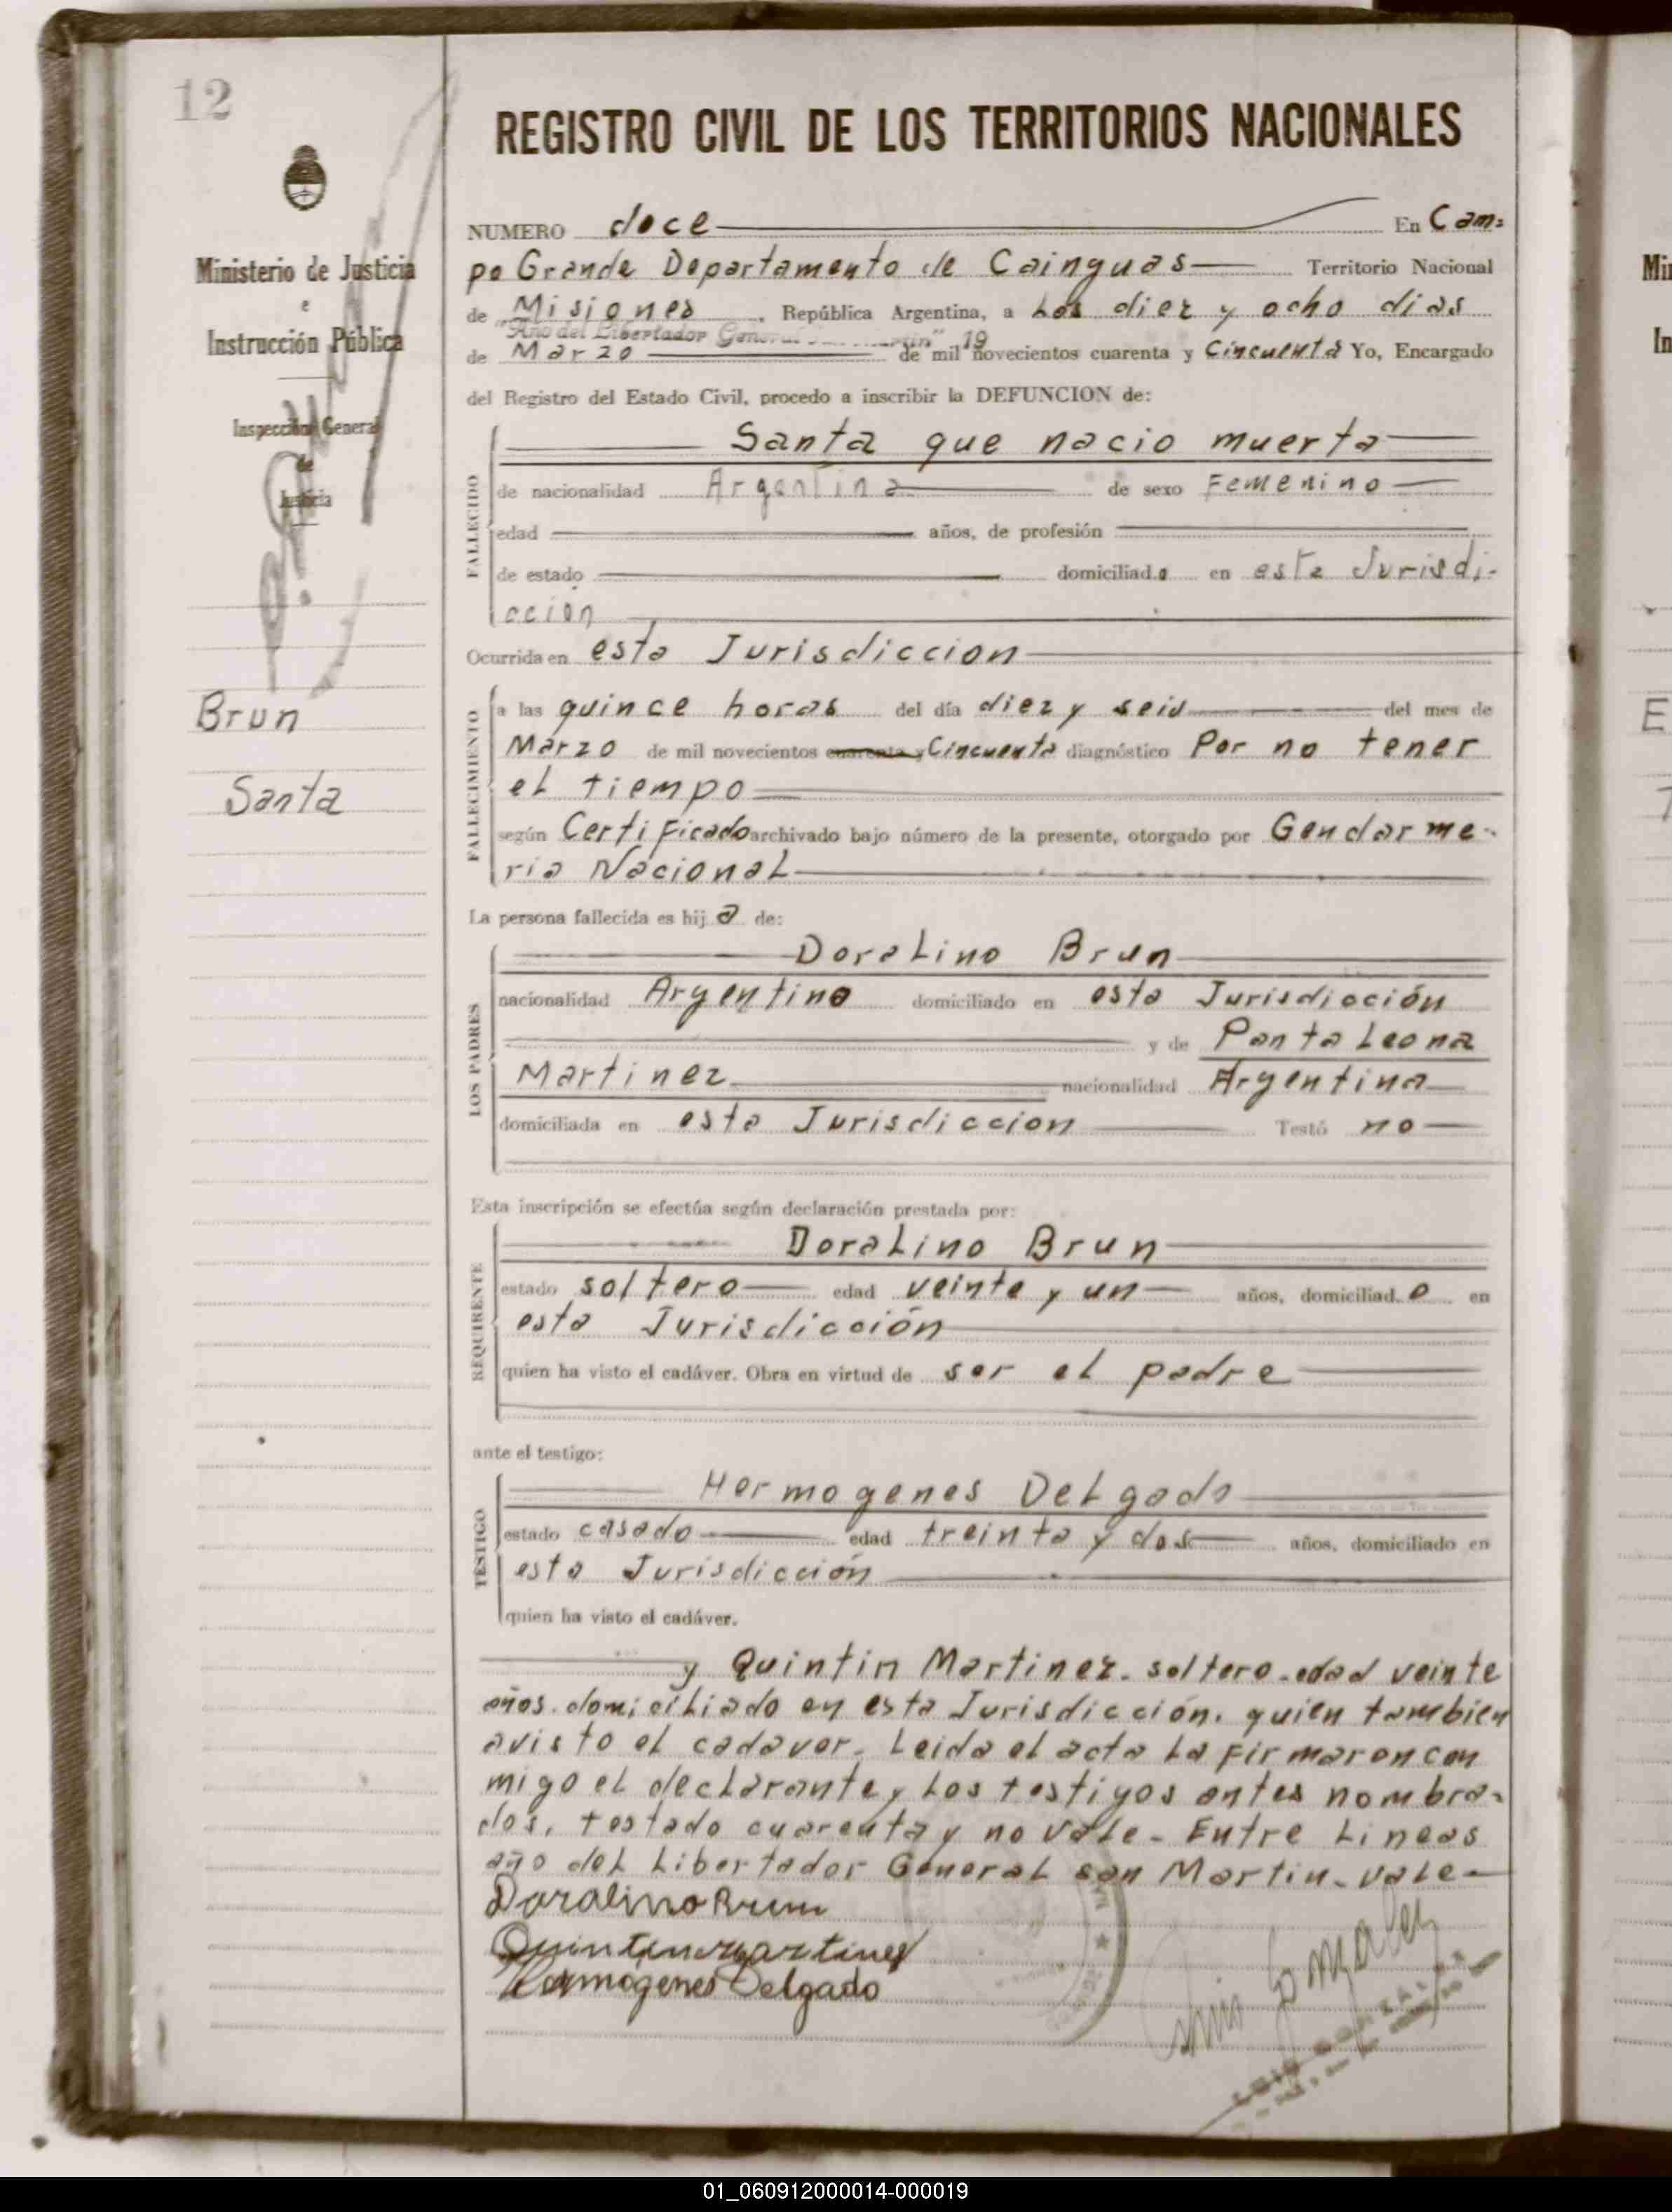 12
Ministerio de Justicia
e
Instrucción Pública
Inspección General
de
Justicia
Brun
Santa
REGISTRO CIVIL DE LOS TERRITORIOS NACIONALES
NUMERO doce En Cam=
po Grande Departamento de Cainguas Territorio Nacional
de Misiones, República Argentina, a Los diez y ocho dias
"Año del Libertador General 19
de Marzo de mil novecientos cuarenta y Cincuenta Yo, Encargado
del Registro del Estado Civil, procedo a inscribir la DEFUNCION de:
FALLECIDO
Santa que nacio muerta
de nacionalidad Argentina de sexo Femenino
edad años, de profesión
de estado domiciliado en esta Jurisdi-
ccion
Ocurrida en esta Jurisdiccion
FALLECIMIENTO
a las quince horas del día diez y seis del mes de
Marzo de mil novecientos cuarenta y Cincuenta diagnóstico Por no tener
el tiempo
según Certificado archivado bajo número de la presente, otorgado por Gendarme-
ria Nacional
La persona fallecida es hija de:
LOS PADRES
Doralino Brun
nacionalidad Argentino domiciliado en esta Jurisdicción
y de Panta Leona
Martinez nacionalidad Argentina
domiciliada en esta Jurisdiccion Testó no
Esta inscripción se efectúa según declaración prestada por:
REQUIRENTE
Doralino Brun
estado soltero edad veinte y un años, domiciliado en
esta Jurisdicción
quien ha visto el cadáver. Obra en virtud de ser el padre
ante el testigo:
TESTIGO
Hermogenes Delgado
estado casado edad treinta y dos años, domiciliado en
esta Jurisdicción
quien ha visto el cadáver.
y Quintin Martinez. soltero. edad veinte
años. domiciliado en esta Jurisdicción. quien tambien
avisto el cadaver. Leida el acta La Firmaron con
migo el declarante y Los testigos antes nombra-
dos. testado cuarenta y no vale - Entre Lineas
año del Libertador General san Martin. vale
Doralino Brun
Quintin martinez
Hermogenes Delgado
Luis Gonzalez
LUIS GONZALEZ
01_060912000014-000019